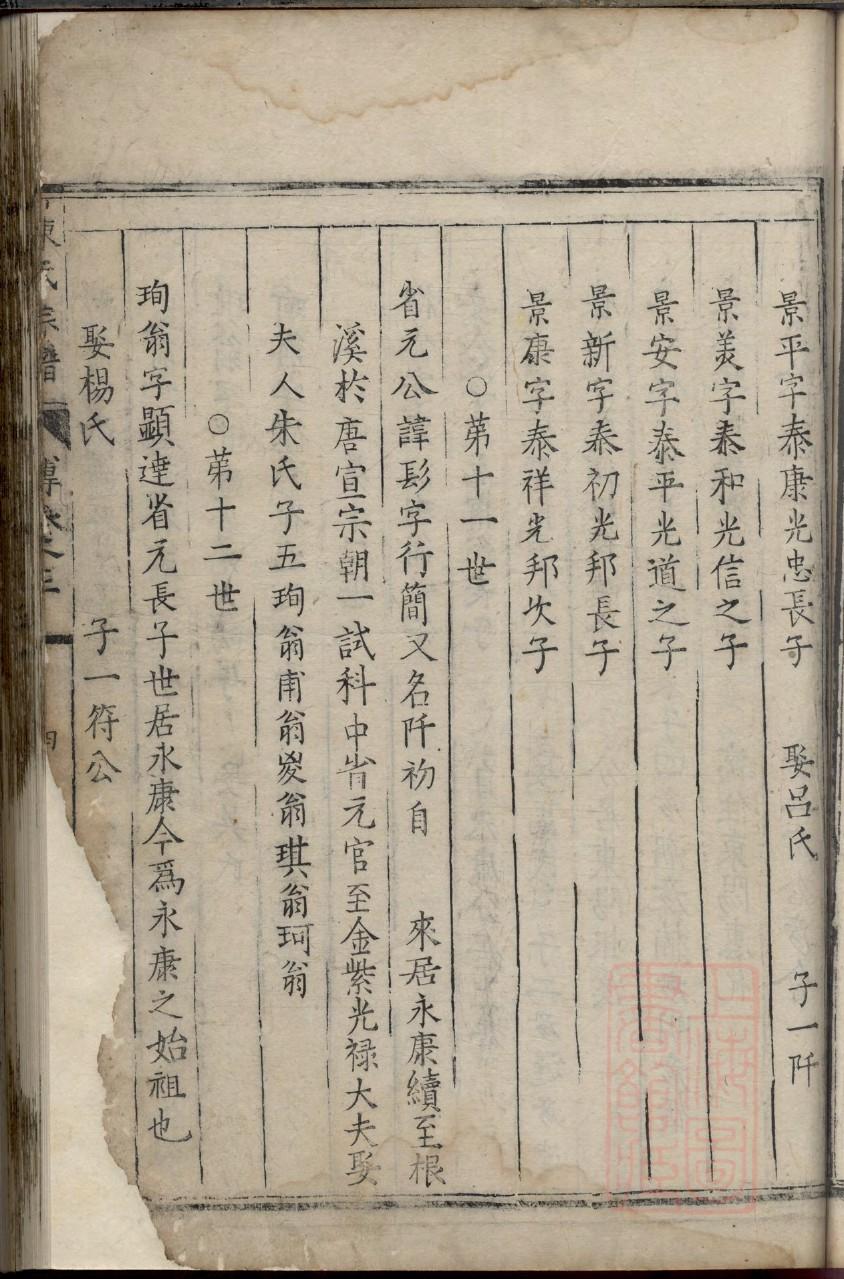 景平字泰康光忠長子 娶呂氏 子一阡
景美字泰和光信之子
景安字泰平光道之子
景新字泰初光邦長子
景康字泰祥光邦次子
○第十一世
省元公諱髟字行簡又名阡初自 來居永康續至根
溪於唐宣宗朝一試科中省元官至金紫光禄大夫娶
夫人朱氏子五珣翁甫翁爕翁琪翁珂翁
○第十二世
珣翁字顯達省元長子世居永康今爲永康之始祖也
娶楊氏 子一符公
陳氏宗譜 傳卷之三 四